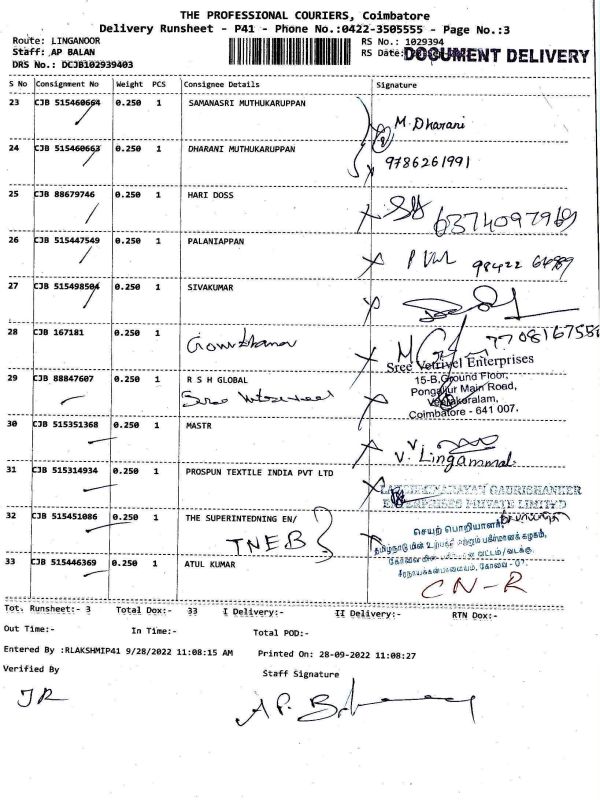 THE PROFESSIONAL COURIERS, Coimbatore
Delivery Runsheet - P41 - Phone No.:0422-3505555 - Page No.:3
Route: LINGANOOR
RS No.: 1029394
Staff: AP BALAN
RS Date:
DOCUMENT DELIVERY
DRS No.: DCJB102939403
S No Consignment No Weight PCS Consignee Details Signature
23 CJB 515460664 0.250 1 SAMANASRI MUTHUKARUPPAN
M. Dharani
24 CJB 515460663 0.250 1 DHARANI MUTHUKARUPPAN
9786261991
25 CJB 88679746 0.250 1 HARI DOSS
6374097969
26 CJB 515447549 0.250 1 PALANIAPPAN
27 CJB 515498504 0.250 1 SIVAKUMAR
28 CJB 167181 0.250 1
Sree Vetrivel Enterprises
29 CJB 88847607 0.250 1 R S H GLOBAL
15-B, Ground Floor,
Pongaliur Main Road,
Coimbatore - 641 007.
30 CJB 515351368 0.250 1 MASTR
V. Lingammal
31 CJB 515314934 0.250 1 PROSPUN TEXTILE INDIA PVT LTD
LAKSHMINARAYAN GAURISHANKER
ENTERPRISES PRIVATE LIMITED
32 CJB 515451086 0.250 1 THE SUPERINTEDNING EN/
TNEB
செயற் பொறியாளர்
33 CJB 515446369 0.250 1 ATUL KUMAR
CN-R
Tot. Runsheet:- 3 Total Dox:- 33 I Delivery:- II Delivery:- RTN Dox:-
Out Time:- In Time:- Total POD:-
Entered By :RLAKSHMIP41 9/28/2022 11:08:15 AM Printed On: 28-09-2022 11:08:27
Verified By Staff Signature